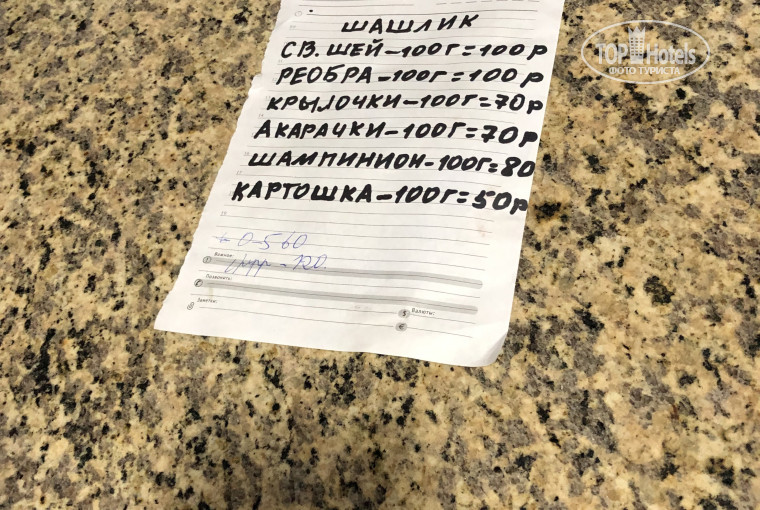 ШАШЛИК
СВ. ШЕЙ-100Г=100Р
РЕОБРА-100Г=100Р
КРЫЛОЧКИ-100Г=70Р
АКАРАЧКИ-100Г=70Р
ШАМПИНИОН-100Г=80
КАРТОШКА-100Г=50Р
0-560
Важное:
-120.
Позвонить:
Заметки:
Валюты:
$
€
TOP Hotels
ФОТО ТУРИСТА